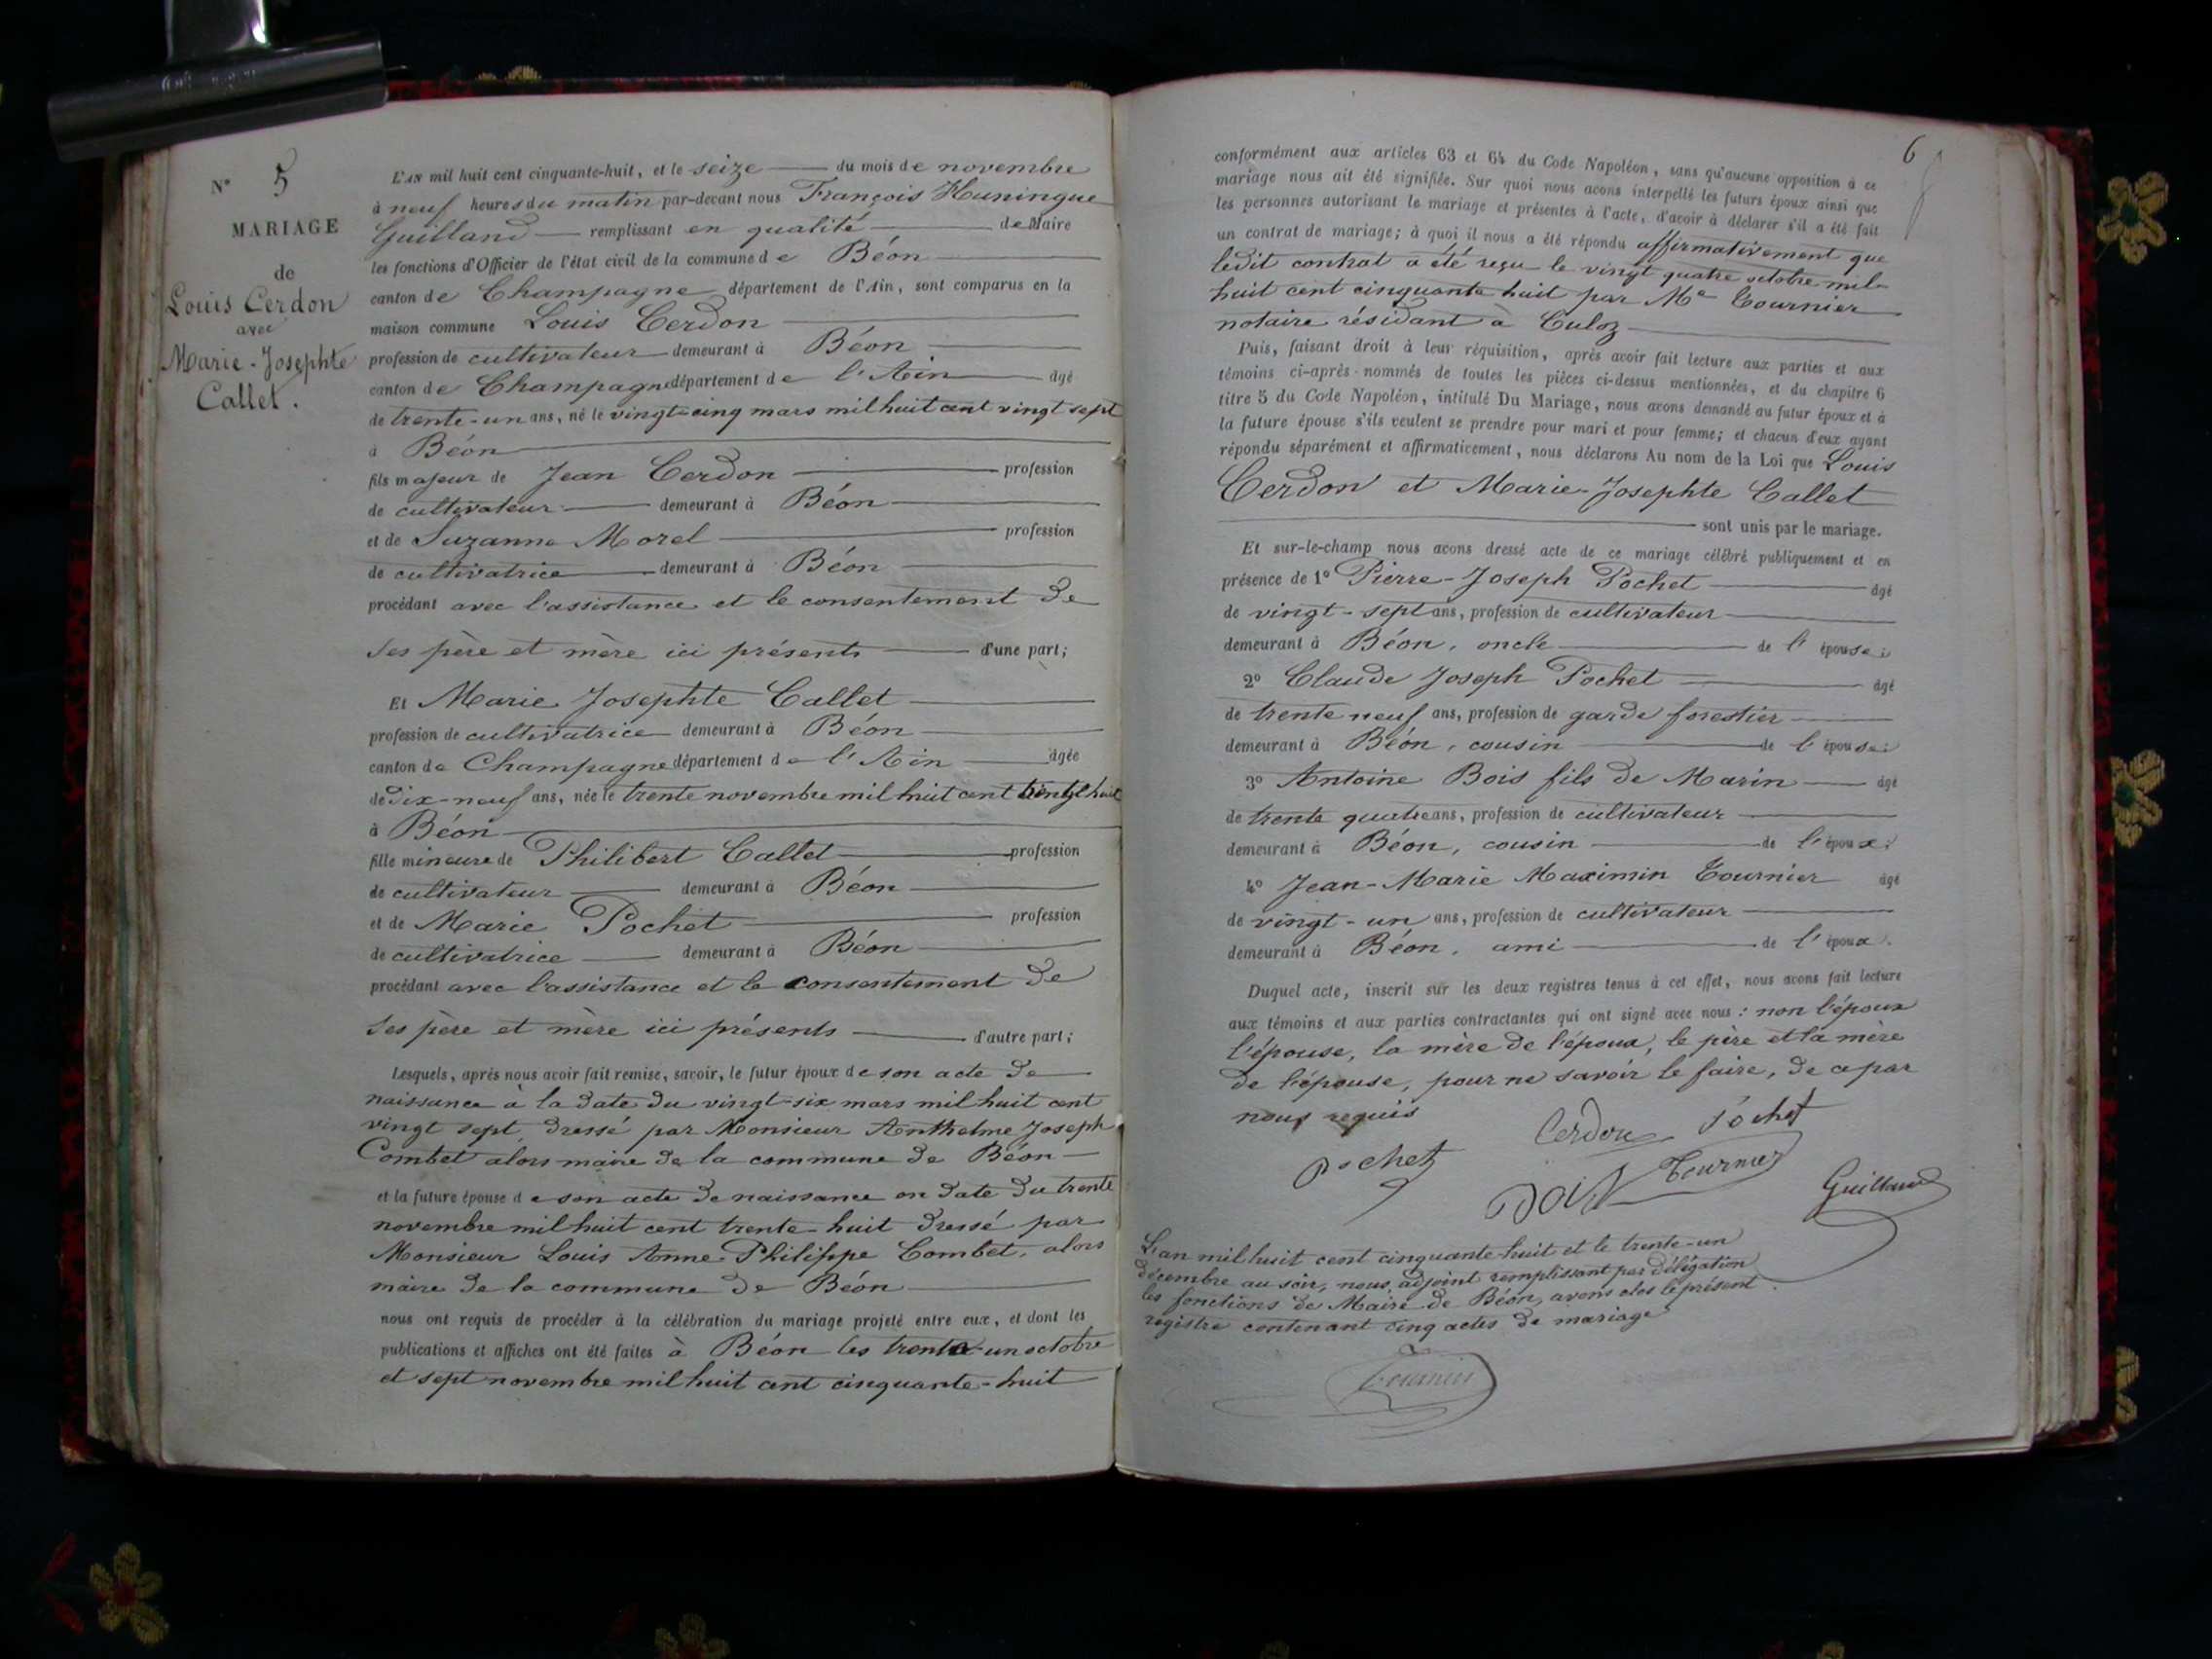 N° 5
MARIAGE
de
Louis Cerdon
avec
Marie-Josephte
Callet.
L'AN mil huit cent cinquante-huit, et le seize du mois de novembre
à neuf heures du matin par-devant nous François Huningue
Guilland remplissant en qualité de Maire
les fonctions d'Officier de l'état civil de la commune de Béon
canton de Champagne département de l'Ain, sont comparus en la
maison commune Louis Cerdon
profession de cultivateur demeurant à Béon
canton de Champagne département de l'Ain âgé
de trente-un ans, né le vingt-cinq mars mil huit cent vingt sept
à Béon
fils majeur de Jean Cerdon profession
de cultivateur demeurant à Béon
et de Suzanne Morel profession
de cultivatrice demeurant à Béon
procédant avec l'assistance et le consentement de
ses père et mère ici présents d'une part;
Et Marie Josephte Callet
profession de cultivatrice demeurant à Béon
canton de Champagne département de l'Ain âgée
de dix-neuf ans, née le trente novembre mil huit cent huit
à Béon
fille mineure de Philibert Callet profession
de cultivateur demeurant à Béon
et de Marie Pochet profession
de cultivatrice demeurant à Béon
procédant avec l'assistance et le consentement de
ses père et mère ici présents d'autre part;
Lesquels, après nous avoir fait remise, savoir, le futur époux de son acte de
naissance à la date du vingt-six mars mil huit cent
vingt sept dressé par Monsieur Anthelme Joseph
Combet alors maire de la commune de Béon
et la future épouse de son acte de naissance en date du trente
novembre mil huit cent trente-huit dressé par
Monsieur Louis Anne Philippe Combet, alors
maire de la commune de Béon
nous ont requis de procéder à la célébration du mariage projeté entre eux, et dont les
publications et affiches ont été faites à Béon les trente-un octobre
et sept novembre mil huit cent cinquante-huit
6
conformément aux articles 63 et 64 du Code Napoléon, sans qu'aucune opposition à ce
mariage nous ait été signifiée. Sur quoi nous avons interpellé les futurs époux ainsi que
les personnes autorisant le mariage et présentes à l'acte, d'avoir à déclarer s'il a été fait
un contrat de mariage; à quoi il nous a été répondu affirmativement que
ledit contrat a été reçu le vingt quatre octobre mil
huit cent cinquante huit par Me Tournier
notaire résidant à Culoz
Puis, faisant droit à leur réquisition, après avoir fait lecture aux parties et aux
témoins ci-après-nommés de toutes les pièces ci-dessus mentionnées, et du chapitre 6
titre 5 du Code Napoléon, intitulé Du Mariage, nous avons demandé au futur époux et à
la future épouse s'ils veulent se prendre pour mari et pour femme; et chacun d'eux ayant
répondu séparément et affirmativement, nous déclarons Au nom de la Loi que Louis
Cerdon et Marie-Josephte Callet
sont unis par le mariage.
Et sur-le-champ nous avons dressé acte de ce mariage célébré publiquement et en
présence de 1° Pierre-Joseph Pochet âgé
de vingt-sept ans, profession de cultivateur
demeurant à Béon, oncle de l'épouse;
2° Claude Joseph Pochet âgé
de trente neuf ans, profession de garde forestier
demeurant à Béon, cousin de l'épouse;
3° Antoine Bois fils de Marin âgé
de trente quatre ans, profession de cultivateur
demeurant à Béon, cousin de l'époux;
4° Jean-Marie Maximin Tournier âgé
de vingt-un ans, profession de cultivateur
demeurant à Béon, ami de l'époux.
Duquel acte, inscrit sur les deux registres tenus à cet effet, nous avons fait lecture
aux témoins et aux parties contractantes qui ont signé avec nous: non l'époux
l'épouse, la mère de l'époux, le père et la mère
de l'épouse, pour ne savoir le faire, de ce par
nous requis
Cerdon Pochet
Pochet
Bois Tournier
Guilland
L'an mil huit cent cinquante-huit et le trente-un
décembre au soir, nous, adjoint remplissant par délégation
les fonctions de Maire de Béon, avons clos le présent
registre contenant cinq actes de mariage
Tournier